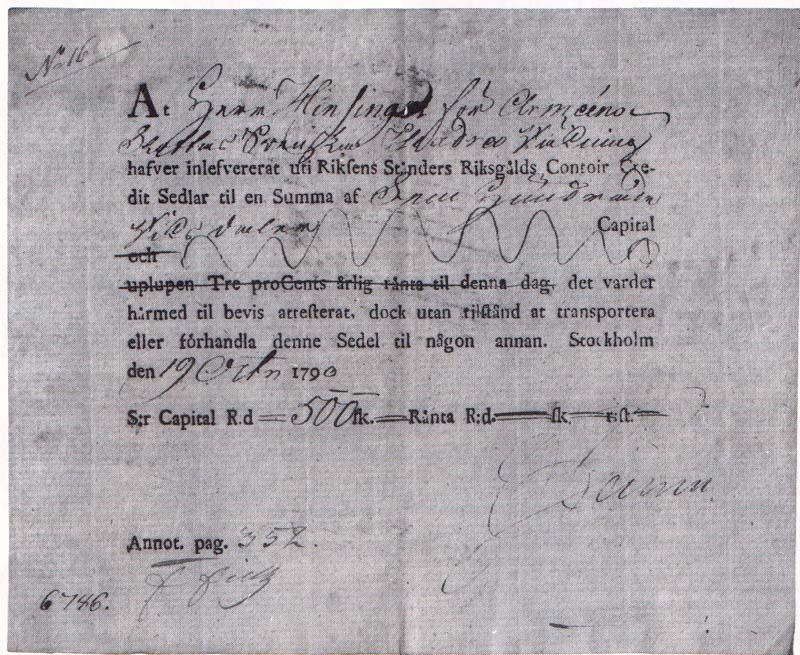 No 16
At Herr Hinsingel för Armeens
Svenska Andrea
hafver inlefvererat uti Rikſens Ständers Riksgålds Contoir Cre-
dit Sedlar til en Summa af Fem Hundrade
Riksdaler Capital
och
uplupen Tre proCents årlig rånta til denna dag, det varder
hårmed til bevis atteſterat, dock utan tilſtånd at transportera
eller förhandla denne Sedel til någon annan. Stockholm
den 19 Octr 1790
S:r Capital R.d 500 ſk. Rånta R:d. ſk. rſt.
Annot. pag. 352.
6746.